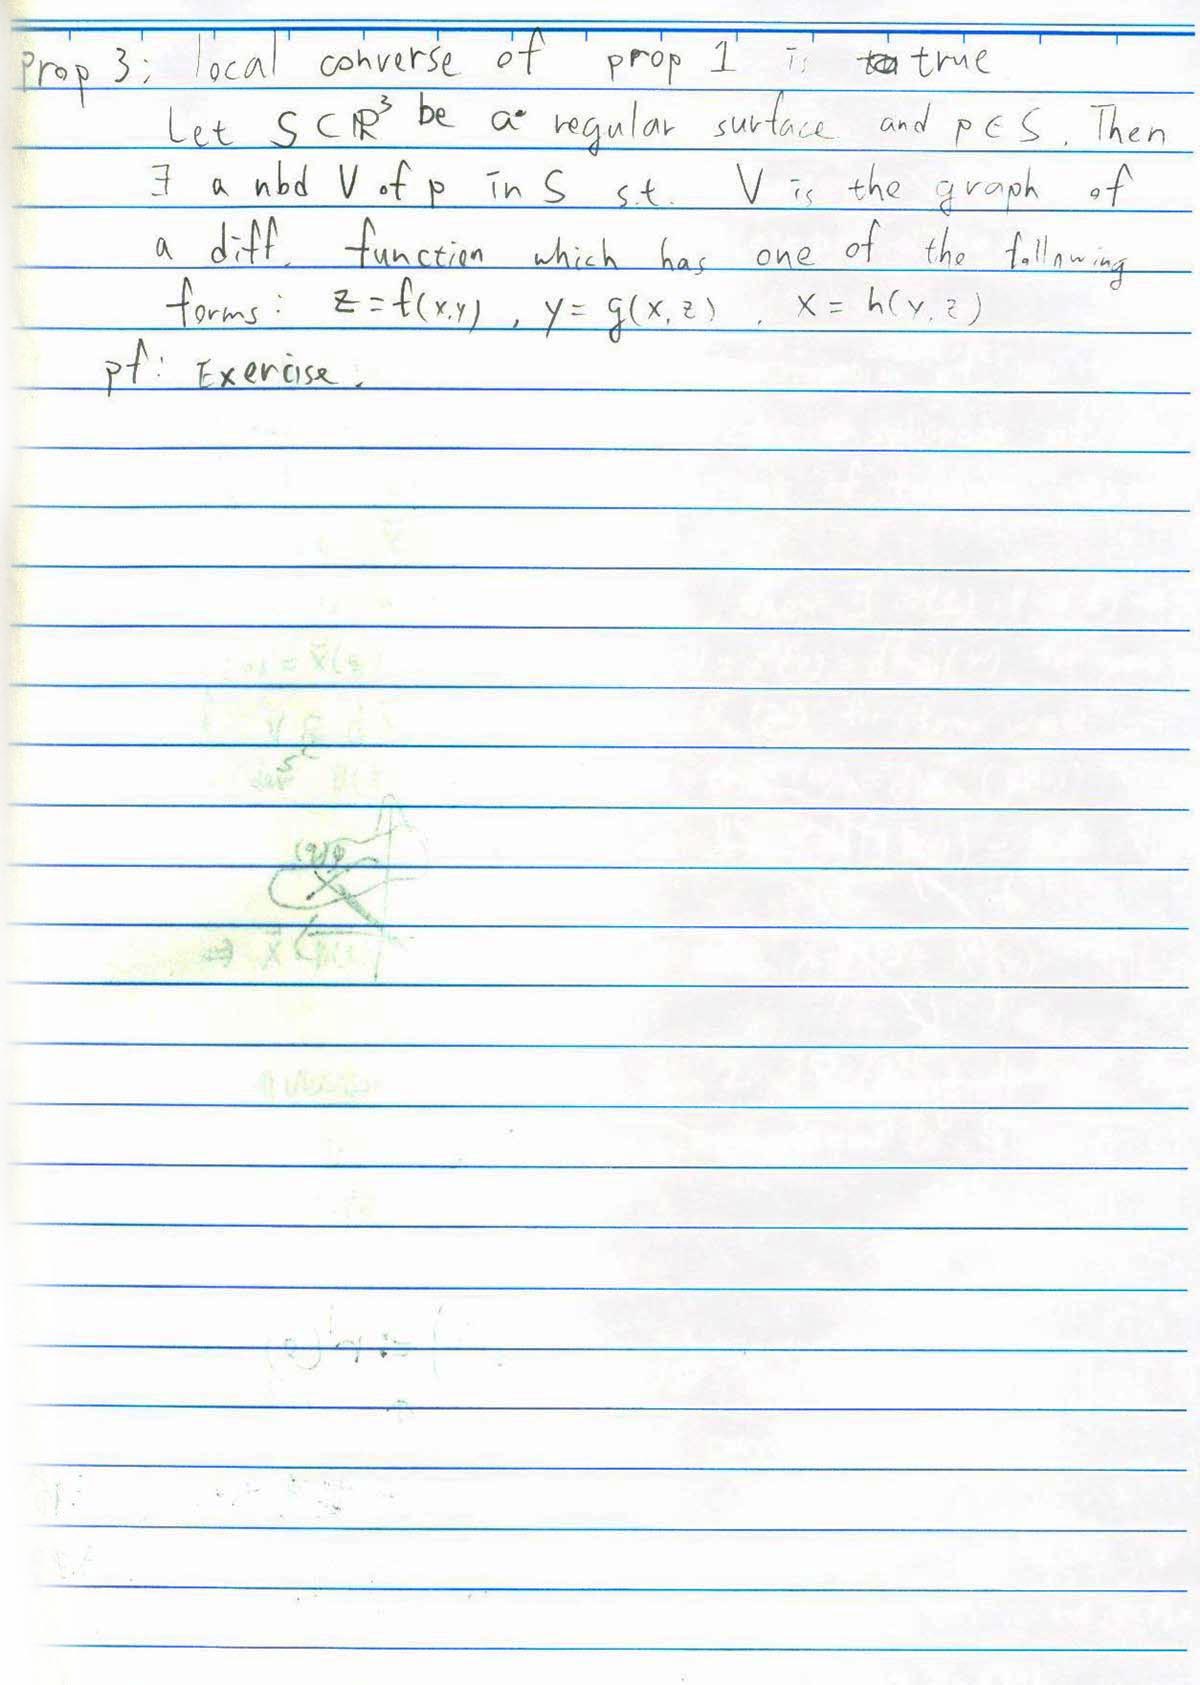 Prop 3: local converse of prop 1 is true
Let S ⊂ ℝ³ be a regular surface and p ∈ S. Then
∃ a nbd V of p in S s.t. V is the graph of
a diff. function which has one of the following
forms: z = f(x,y), y = g(x,z), x = h(y,z)
pf: Exercise.